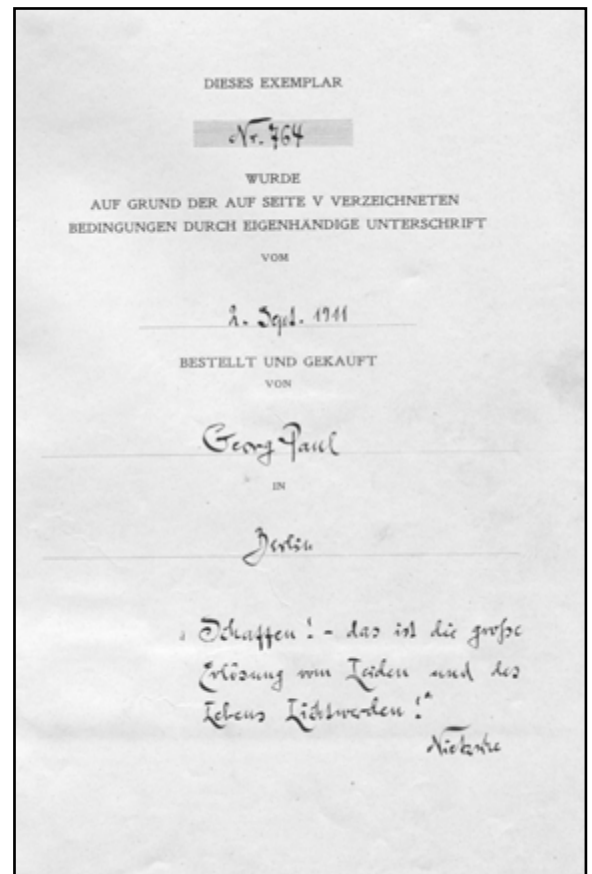 DIESES EXEMPLAR
Nr. 764
WURDE
AUF GRUND DER AUF SEITE V VERZEICHNETEN
BEDINGUNGEN DURCH EIGENHÄNDIGE UNTERSCHRIFT
VOM
2. Sept. 1911
BESTELLT UND GEKAUFT
VON
Georg Paul
IN
Berlin
„Schaffen! - das ist die große
Erlösung vom Leiden und des
Lebens Lichtwerden!"
Nietzsche